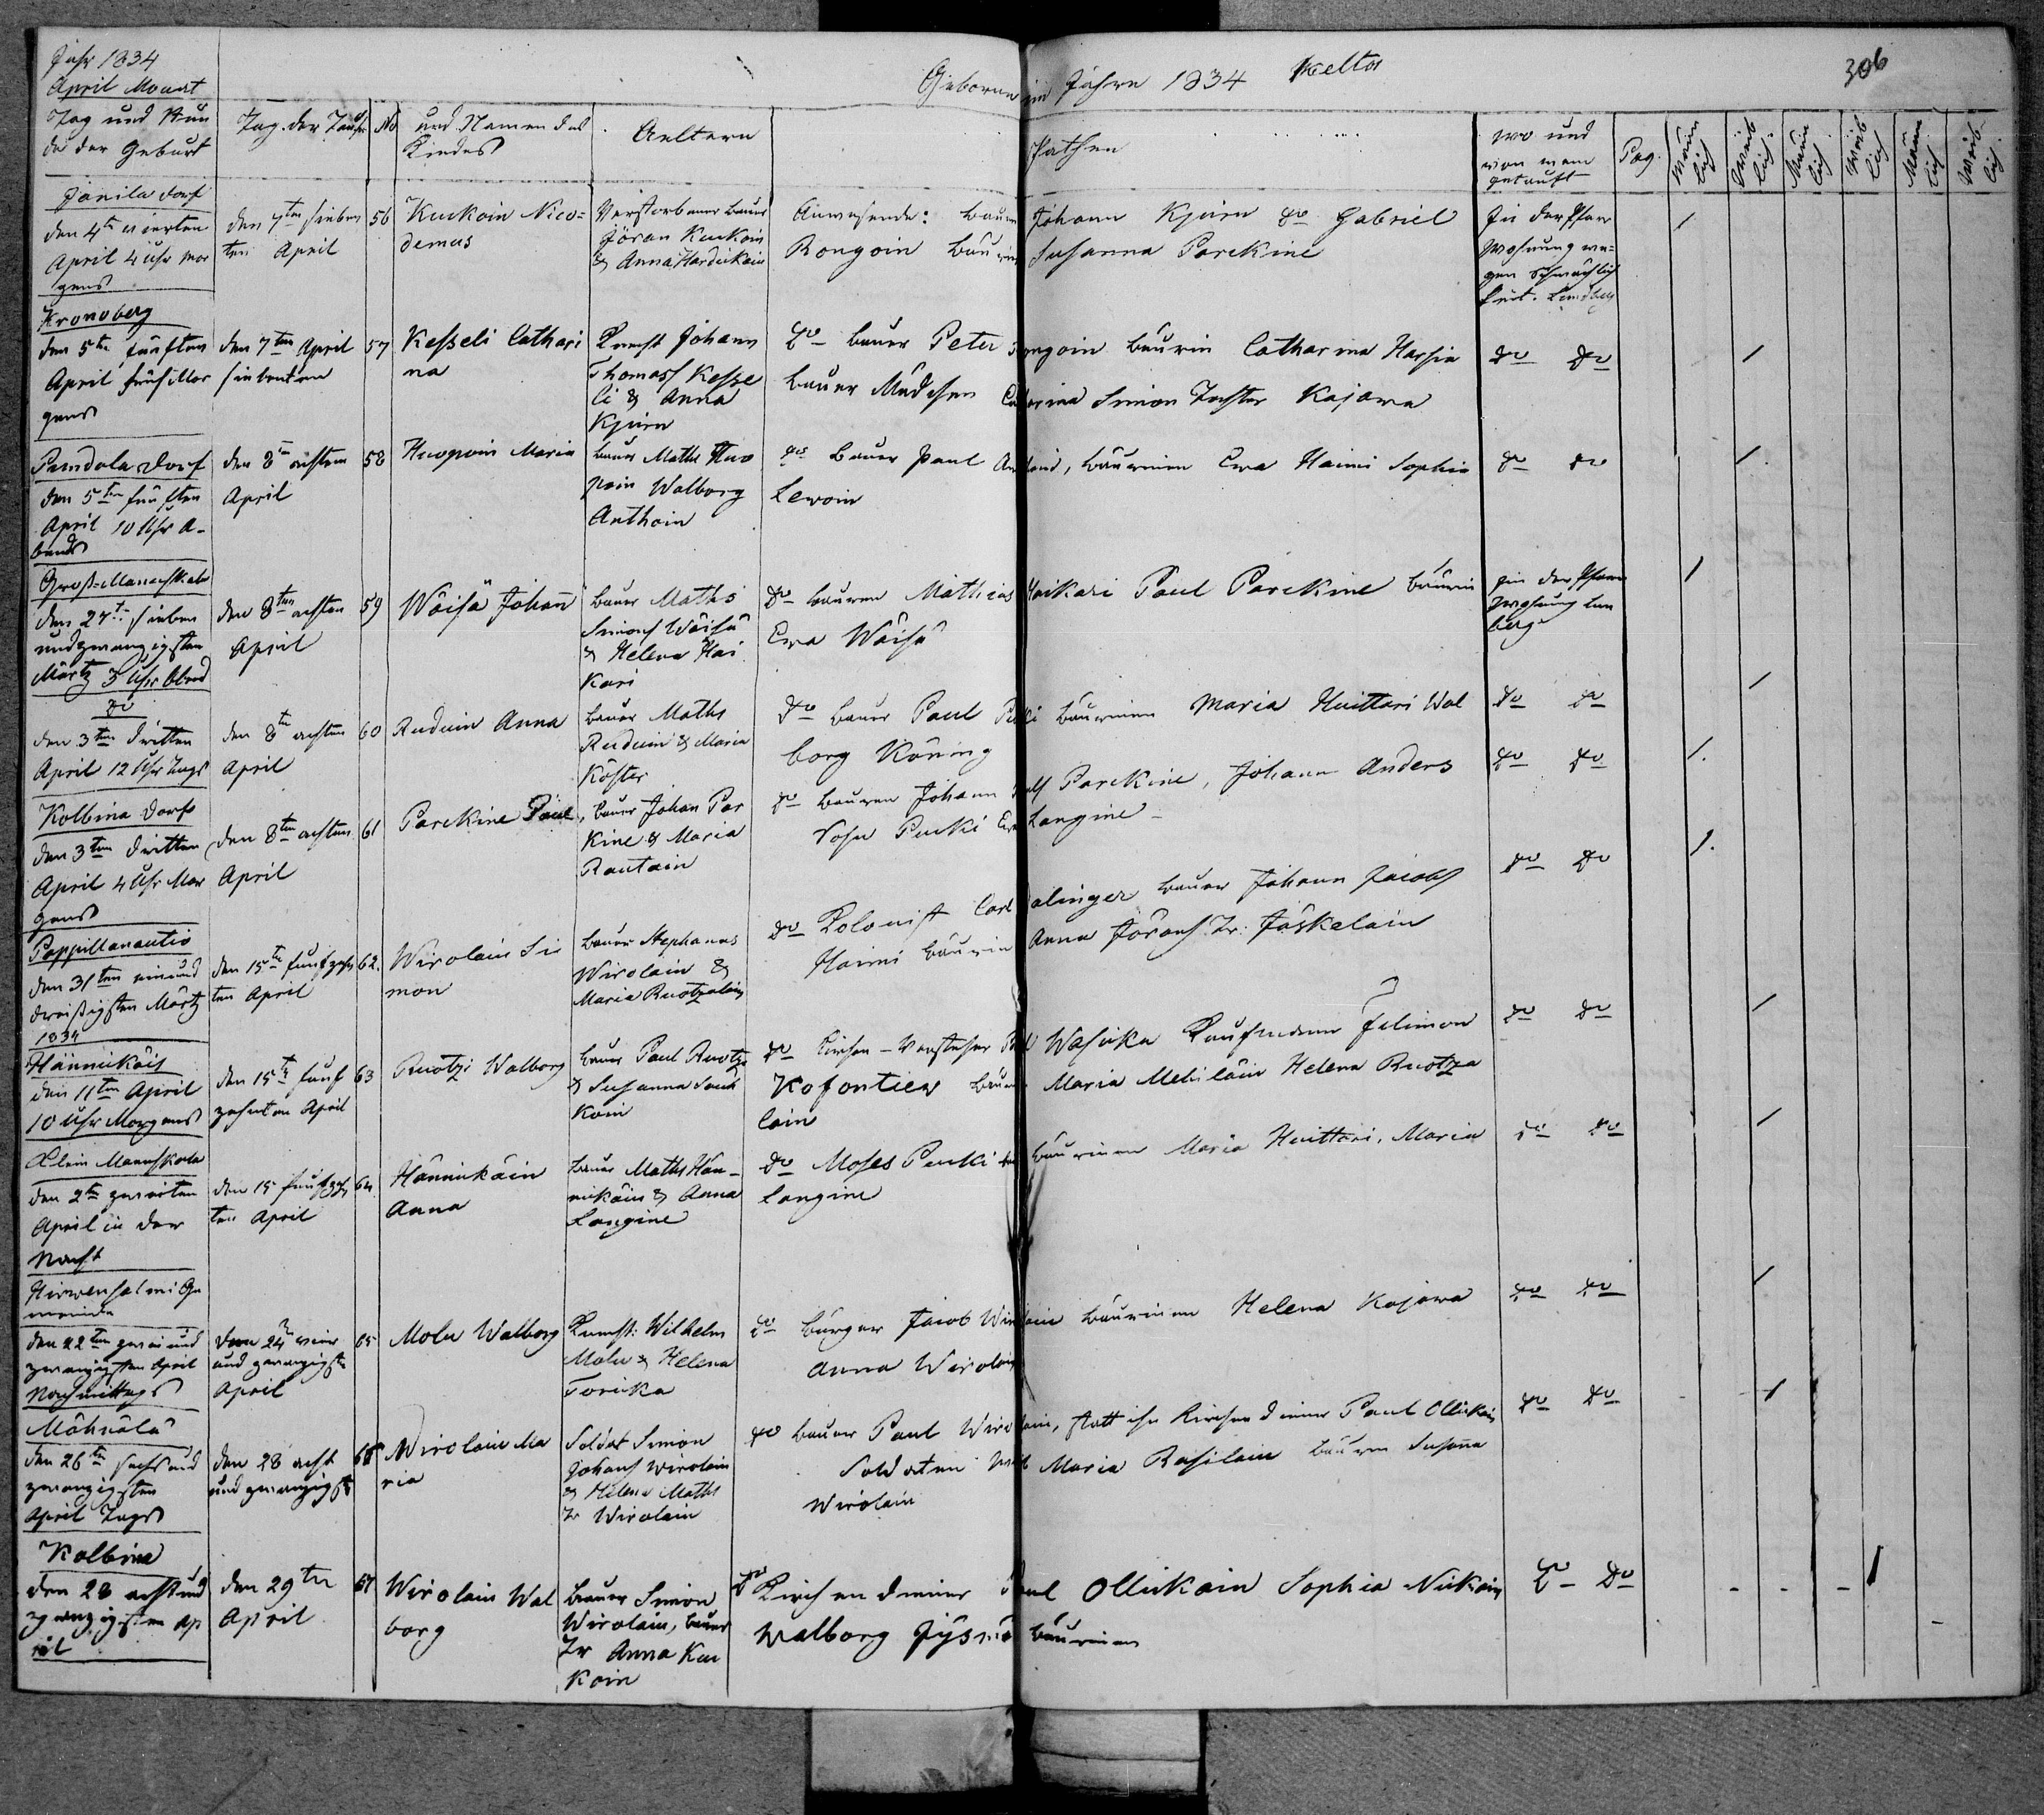 Jahr 1834
April Monat
Geborne im Jahre 1834 Kelto
306
Tag und Stun
de der Geburt
Tag der Taufe
No
und Namen des
Kindes
Aeltern
Pathen
wo und
von wem
getauft
Pag.
Män
lich
Weib
lich
Män
lich
Weib
lich
Män
lich
Weib
lich
Janila dorf
den 4ten vierten
April 4 Uhr Mor
gens
den 7ten sieben
ten April
56
Kukoin Nico=
demus
Verstorbener Bauer
Jöran Kukoin
& Anna Hardikain
Anwesende: Bauern Johann Kjurn do Gabriel
Rongoin Bäurin Susanna Parckine
In der Pfarr
Wohnung we=
gen Schwächlich
keit.
Kronoberg
den 5ten fünften
April früh Mor
gens
den 7ten April
siebenten
57
Kesseli Cathari
na
Knecht Johann
Thomass Kesse
li & Anna
Kjurn
do Bauer Peter Rongoin Bäurin Catharina Harsia
Bauer Mädchen Catharina Simon Tochter Kajawa
do do
Pundola Dorf
den 5ten fünften
April 10 Uhr A-
bends
den 8ten achten
April
58
Huopoin Maria
Bauer Maths Huo
poin Walborg
Anthoin
do Bauer Paul Bäurinen Ewa Haimi Sophia
Lewoin
do do
Gross=Mannskala
den 27t. sieben
undzwanzigsten
Märtz 3 Uhr Abend
den 8ten achten
April
59
Wäisä Johann
Bauer Maths
Simons Wäisä
& Helena Hai
kari
do Bauren Mathias Haikari Paul Parckine Bäurin
Ewa Wäisä
in der Pfarr
Wohnung
do
den 3ten dritten
April 12 Uhr Tags
den 8ten achten
April
60
Ruduin Anna
Bauer Maths
Ruduin & Maria
Köster
do Bauer Paul Pukki Bäurinen Maria Huittari Wal
borg Köning
do do
Kolbina Dorf
den 3ten dritten
April 4 Uhr Mor
gens
den 8ten achten
April
61
Parckine Paul
Bauer Johan Par
kine & Maria
Rautain
do Bauren Johann Parckine, Johann Anders
Sohn Pucki Ewa Langine
do do
Poppillanautio
den 31ten einund
dreissigsten Märtz
1834
den 15te funfzehn
ten April
62
Wirolain Si
mon
Bauer Stephanus
Wirolain &
Maria Ruotzalain
do Kolonist Carl Bauer Johann Jacobs
Haimi Bäurin Anna Jörans Tr. Jäskelain
do do
Hännikäis
den 11ten April
10 Uhr Morgens
den 15te funf
zehnten April
63
Ruotzi Walborg
Bauer Paul Ruotzi
& Susanna Sauk
koin
do Kirchen-Vorsteher Paul Wasicka Kaufmann Filimon
Kofontiew Bäurin Maria Mehiläin Helena Ruotza
lain
do do
Klein Mannskala
den 2ten zweiten
April in der
Nacht
den 15 funfzehn
ten April
64
Hännikäin
Anna
Bauer Maths Hän-
nikäin & Anna
Langine
do Moses Pucki Bäurinen Maria Huittari, Maria
Langine
do do
Hirwensalmi Ge
meinde
den 22ten zwei und
zwanzigsten April
Nachmittags
den 24 vier
und zwanzigste
April
65
Molu Walborg
Knecht: Wilhelm
Molu & Helena
Toricka
do Bürger Jacob Wirolain Bäurinen Helena Kajawa
Anna Wirolain
do do
Möhnälä
den 26te sechsund
zwanzigsten
April Tags
den 28 acht
und zwanzigste
66
Wirolain Ma
ria
Soldat Simon
Johans Wirolain
& Helena Maths
Tr Wirolain
do Bauer Paul Wirolain, statt ihn Kirchendiener Paul Ollikain
Soldaten Weib Maria Rasilain Bäurin Susanna
Wirolain
do do
Kolbina
den 28 achtund
zwanzigsten Ap
ril
den 29ten
April
67
Wirolain Wal
borg
Bauer Simon
Wirolain, Bauer
Tr Anna Kur
koin
do Kirchendiener Paul Ollikain Sophia Nickain
Walborg Jysmä Bäurinen
do do